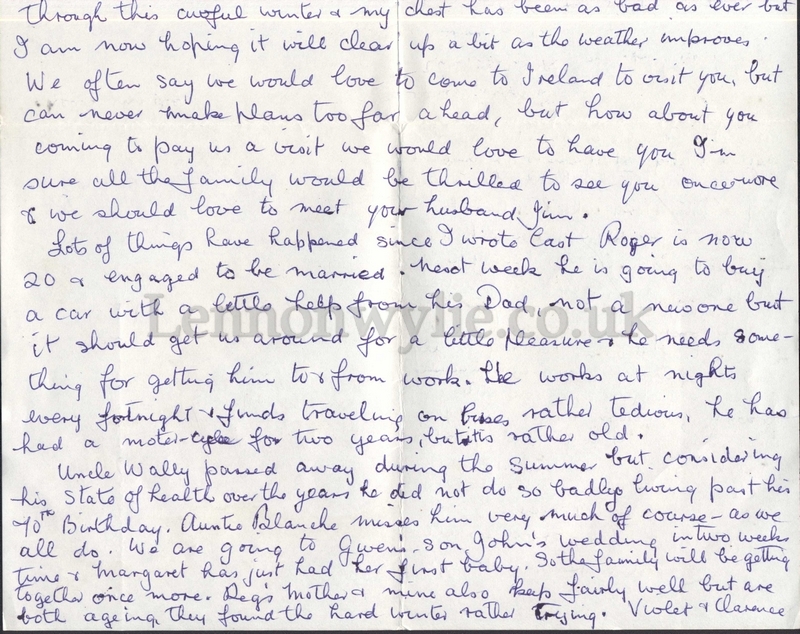 through this awful winter & my chest has been as bad as ever but
I am now hoping it will clear up a bit as the weather improves.
We often say we would love to come to Ireland to visit you, but
can never make plans too far ahead, but how about you
coming to pay us a visit we would love to have you I'm
sure all the family would be thrilled to see you once more
& we should love to meet your husband Jim.
Lots of things have happened since I wrote last Roger is now
20 & engaged to be married. Next week he is going to buy
a car with a little help from his Dad, not a new one but
Lennonwylie.co.uk
it should get us around for a little pleasure & he needs some-
thing for getting him to & from work. He works at nights
every fortnight & finds traveling on buses rather tedious, he has
had a moter-cycle for two years, but it is rather old.
Uncle Wally passed away during the summer but considering
his state of health over the years he did not do so badly living past his
70th Birthday. Auntie Blanche misses him very much of course - as we
all do. We are going to Gwens son John's wedding in two weeks
time & Margaret has just had her first baby. So the family will be getting
together once more. Regs Mother & mine also keep fairly well but are
both ageing, they found the hard winter rather trying. Violet & Clarence